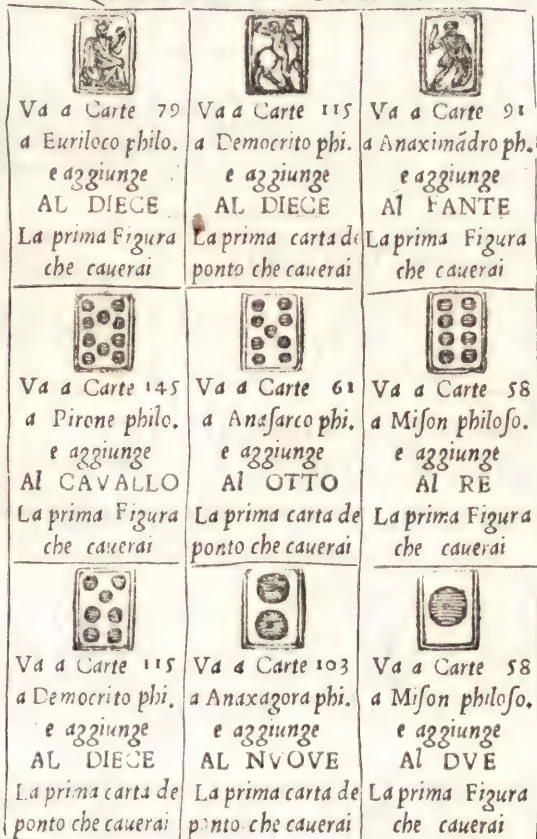 Va a Carte 79
a Euriloco philo.
e aggiunge
AL DIECE
La prima Figura
che cauerai
Va a Carte 115
a Democrito phi.
e aggiunge
AL DIECE
La prima carta de
ponto che cauerai
Va a Carte 91
a Anaximãdro ph.
e aggiunge
Al FANTE
La prima Figura
che cauerai
Va a Carte 145
a Pirone philo.
e aggiunge
Al CAVALLO
La prima Figura
che cauerai
Va a Carte 61
a Anaſarco phi.
e aggiunge
Al OTTO
La prima carta de
ponto che cauerai
Va a Carte 58
a Miſon philoſo.
e aggiunge
Al RE
La prima Figura
che cauerai
Va a Carte 115
a Democrito phi.
e aggiunge
AL DIECE
La prima carta de
ponto che cauerai
Va a Carte 103
a Anaxagora phi.
e aggiunge
AL NVOVE
La prima carta de
ponto che cauerai
Va a Carte 58
a Miſon philoſo.
e aggiunge
Al DVE
La prima Figura
che cauerai